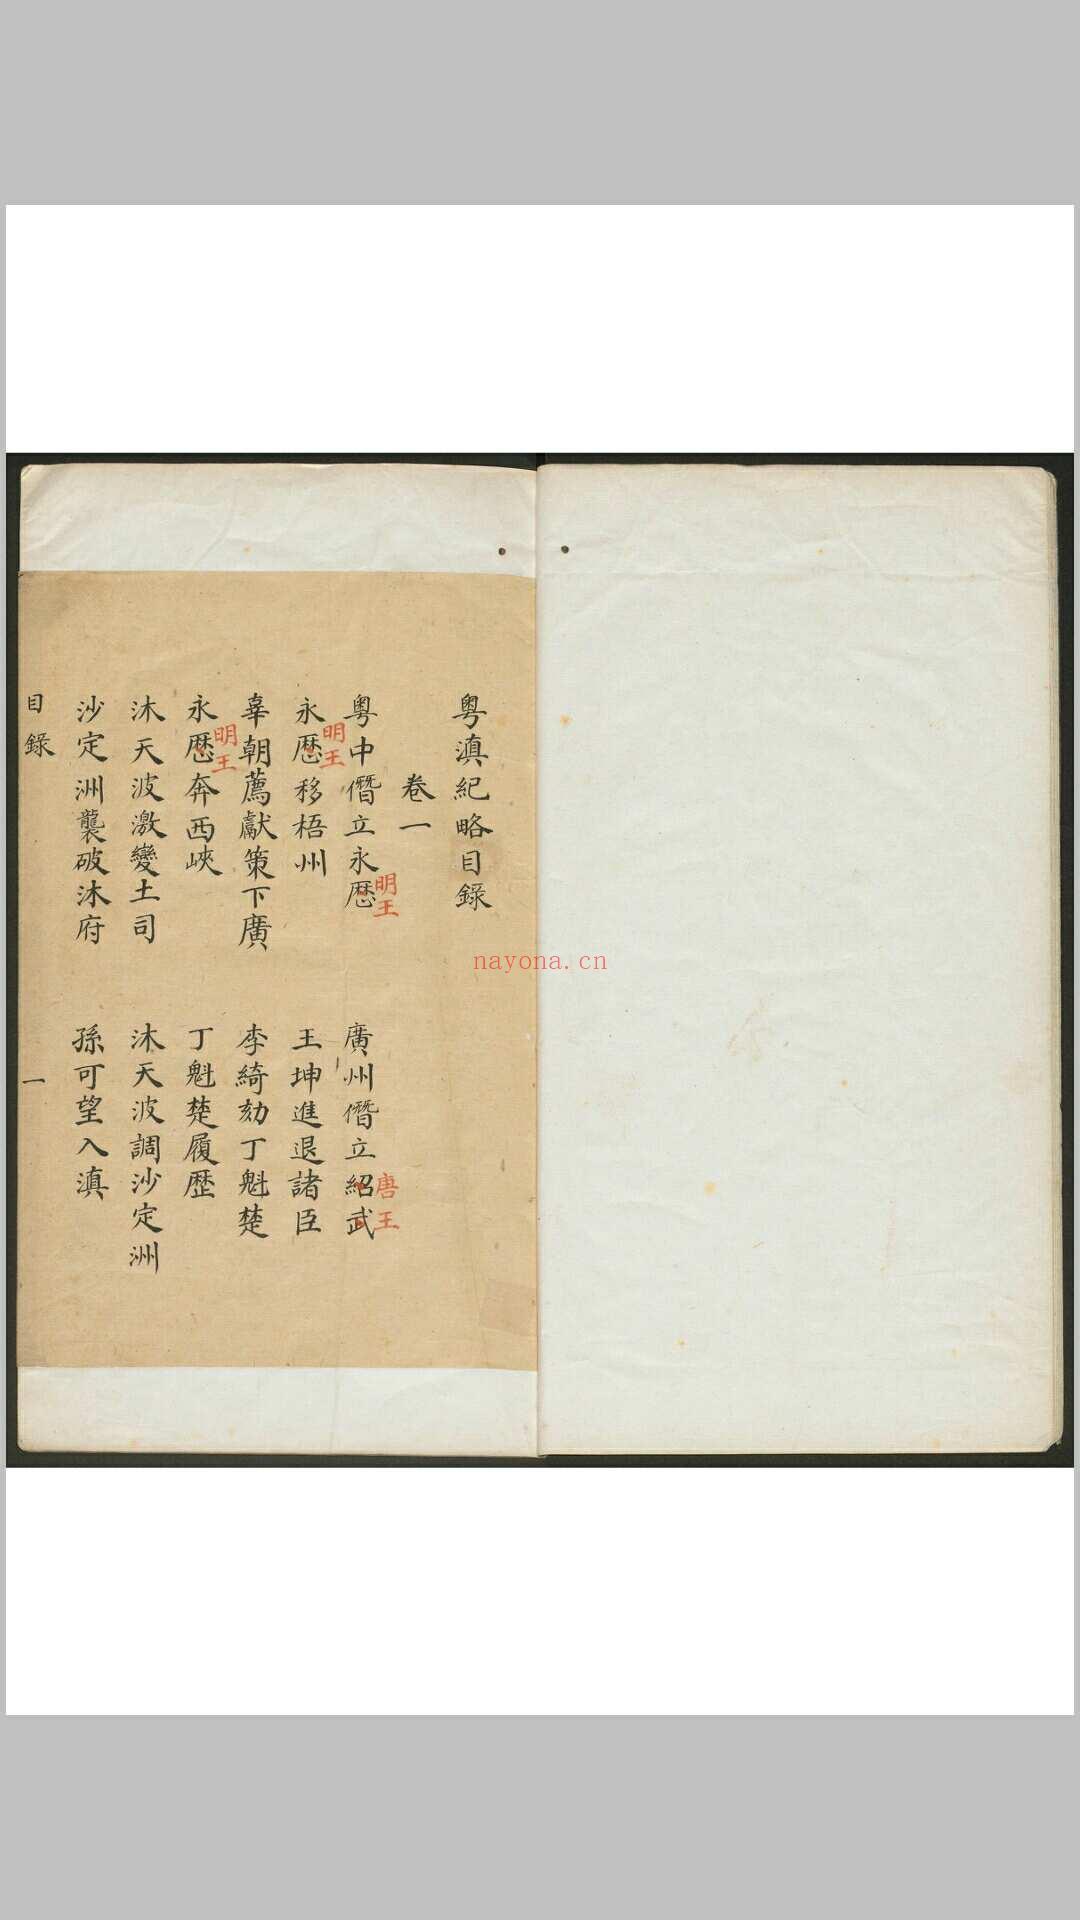 粵滇紀略目錄
卷一
粵中僭立永歷 廣州僭立紹武
明王 唐王
永歷移梧州 王坤進退諸臣
明王
辜朝薦獻策下廣 李綺劾丁魁楚
永歷奔西峽 丁魁楚履歷
明王
沐天波激變土司 沐天波調沙定洲
沙定洲襲破沐府 孫可望入滇
目錄 一
nayona.cn